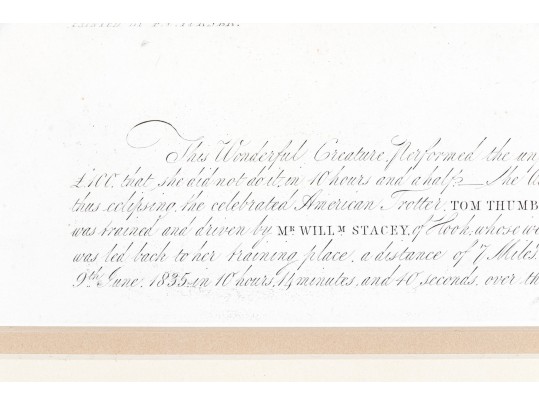 This Wonderful Creature, Performed the un
£100, that she did not do it, in 10 hours and a half;— The
thus eclipsing, the celebrated American Trotter, TOM THUMB
was trained and driven by Mᴿ WILLᴹ STACEY, of Hook, whose we
was led back to her training place, a distance of 7 Miles.
9th June, 1835, in 10 hours, 14 minutes, and 40 seconds, over th